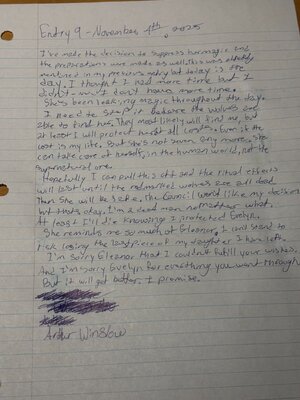 Entry 9 - November 4th, 2025
I've made the decision to suppress her magic. And
the preparations were made as well. This was already
mentioned in my previous entry but today is the
day. I thought I had more time but I
didn't. We don't have more time.
She's been leaking magic throughout the day.
I need to stop it before the wolves are
able to find her. They most likely will find me, but
at least I will protect her at all costs. Even if the
cost is my life. But she's not seven any more, she
can take care of herself, in the human world, not the
supernatural one.
Hopefully I can pull this off and the ritual effects
will last until the red marked wolves are all dead.
Then she will be safe. The Council won't like my decision
but that's okay. I'm a dead man no matter what.
At least I'll die knowing I protected Evelyn.
She reminds me so much of Eleanor. I can't stand to
risk losing the last piece of my daughter I have left.
I'm sorry Eleanor that I couldn't fulfill your wishes.
And I'm sorry Evelyn for everything you went through.
But it will get better. I promise.
Arthur Winslow